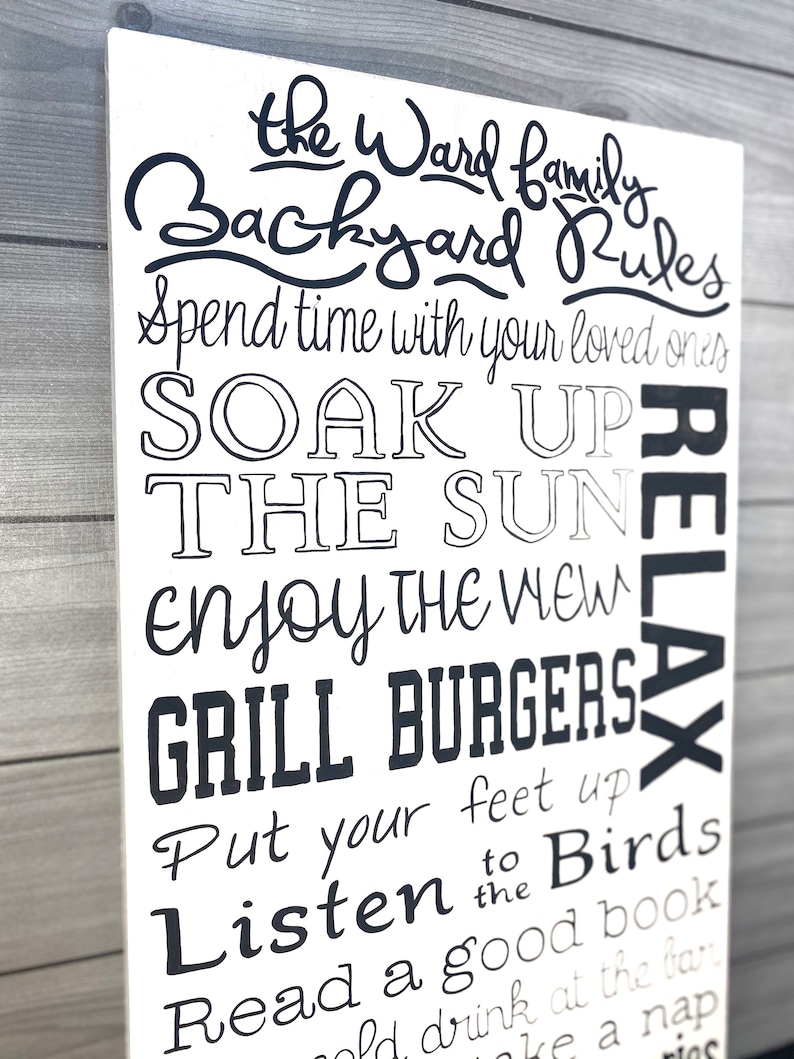 the Ward family
Backyard Rules
Spend time with your loved ones
SOAK UP
THE SUN
RELAX
enjoy THE VIEW
GRILL BURGERS
Put your feet up
Listen to the Birds
Read a good book
drink at the bar
a nap